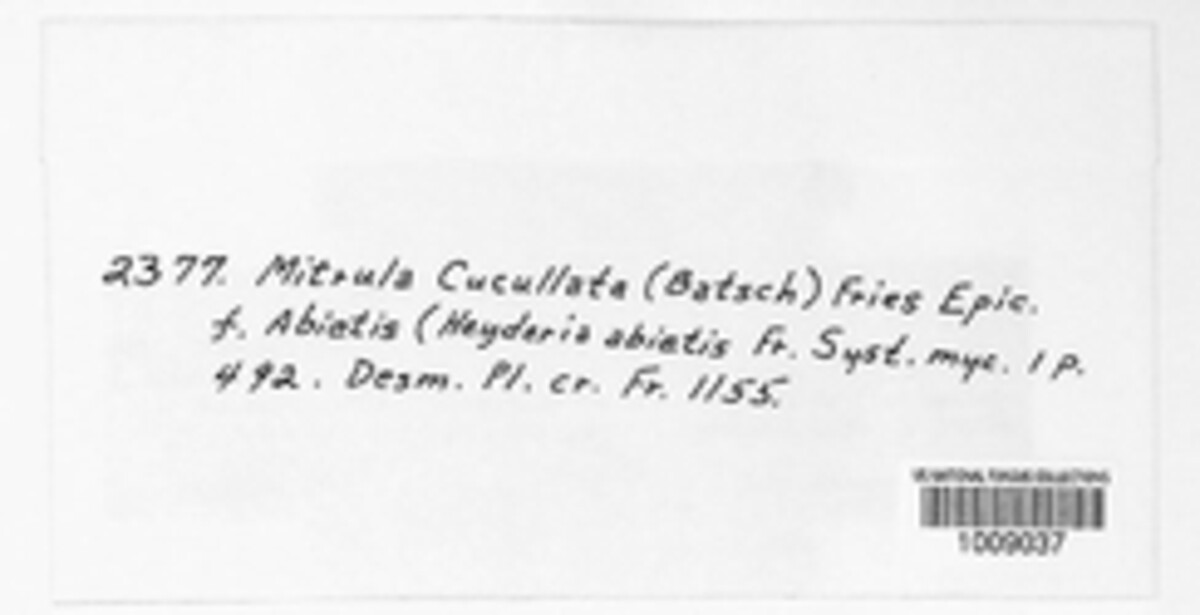 2377. Mitrula Cucullata (Batsch) Fries Epic.
f. Abietis (Heyderia abietis Fr. Syst. myc. 1 p.
492. Desm. Pl. cr. Fr. 1155.
US NATIONAL FUNGUS COLLECTIONS
1009037